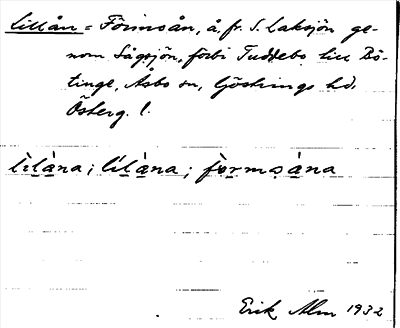 Lillån = Förmsån, å, fr. S. Laksjön ge-
nom Sågsjön, förbi Tuddebo till Bö-
tinge, Asbo sn, Göstrings hd,
Österg. l.
lìlàna; lílàna; fòrmsàna
Erik Alm 1932